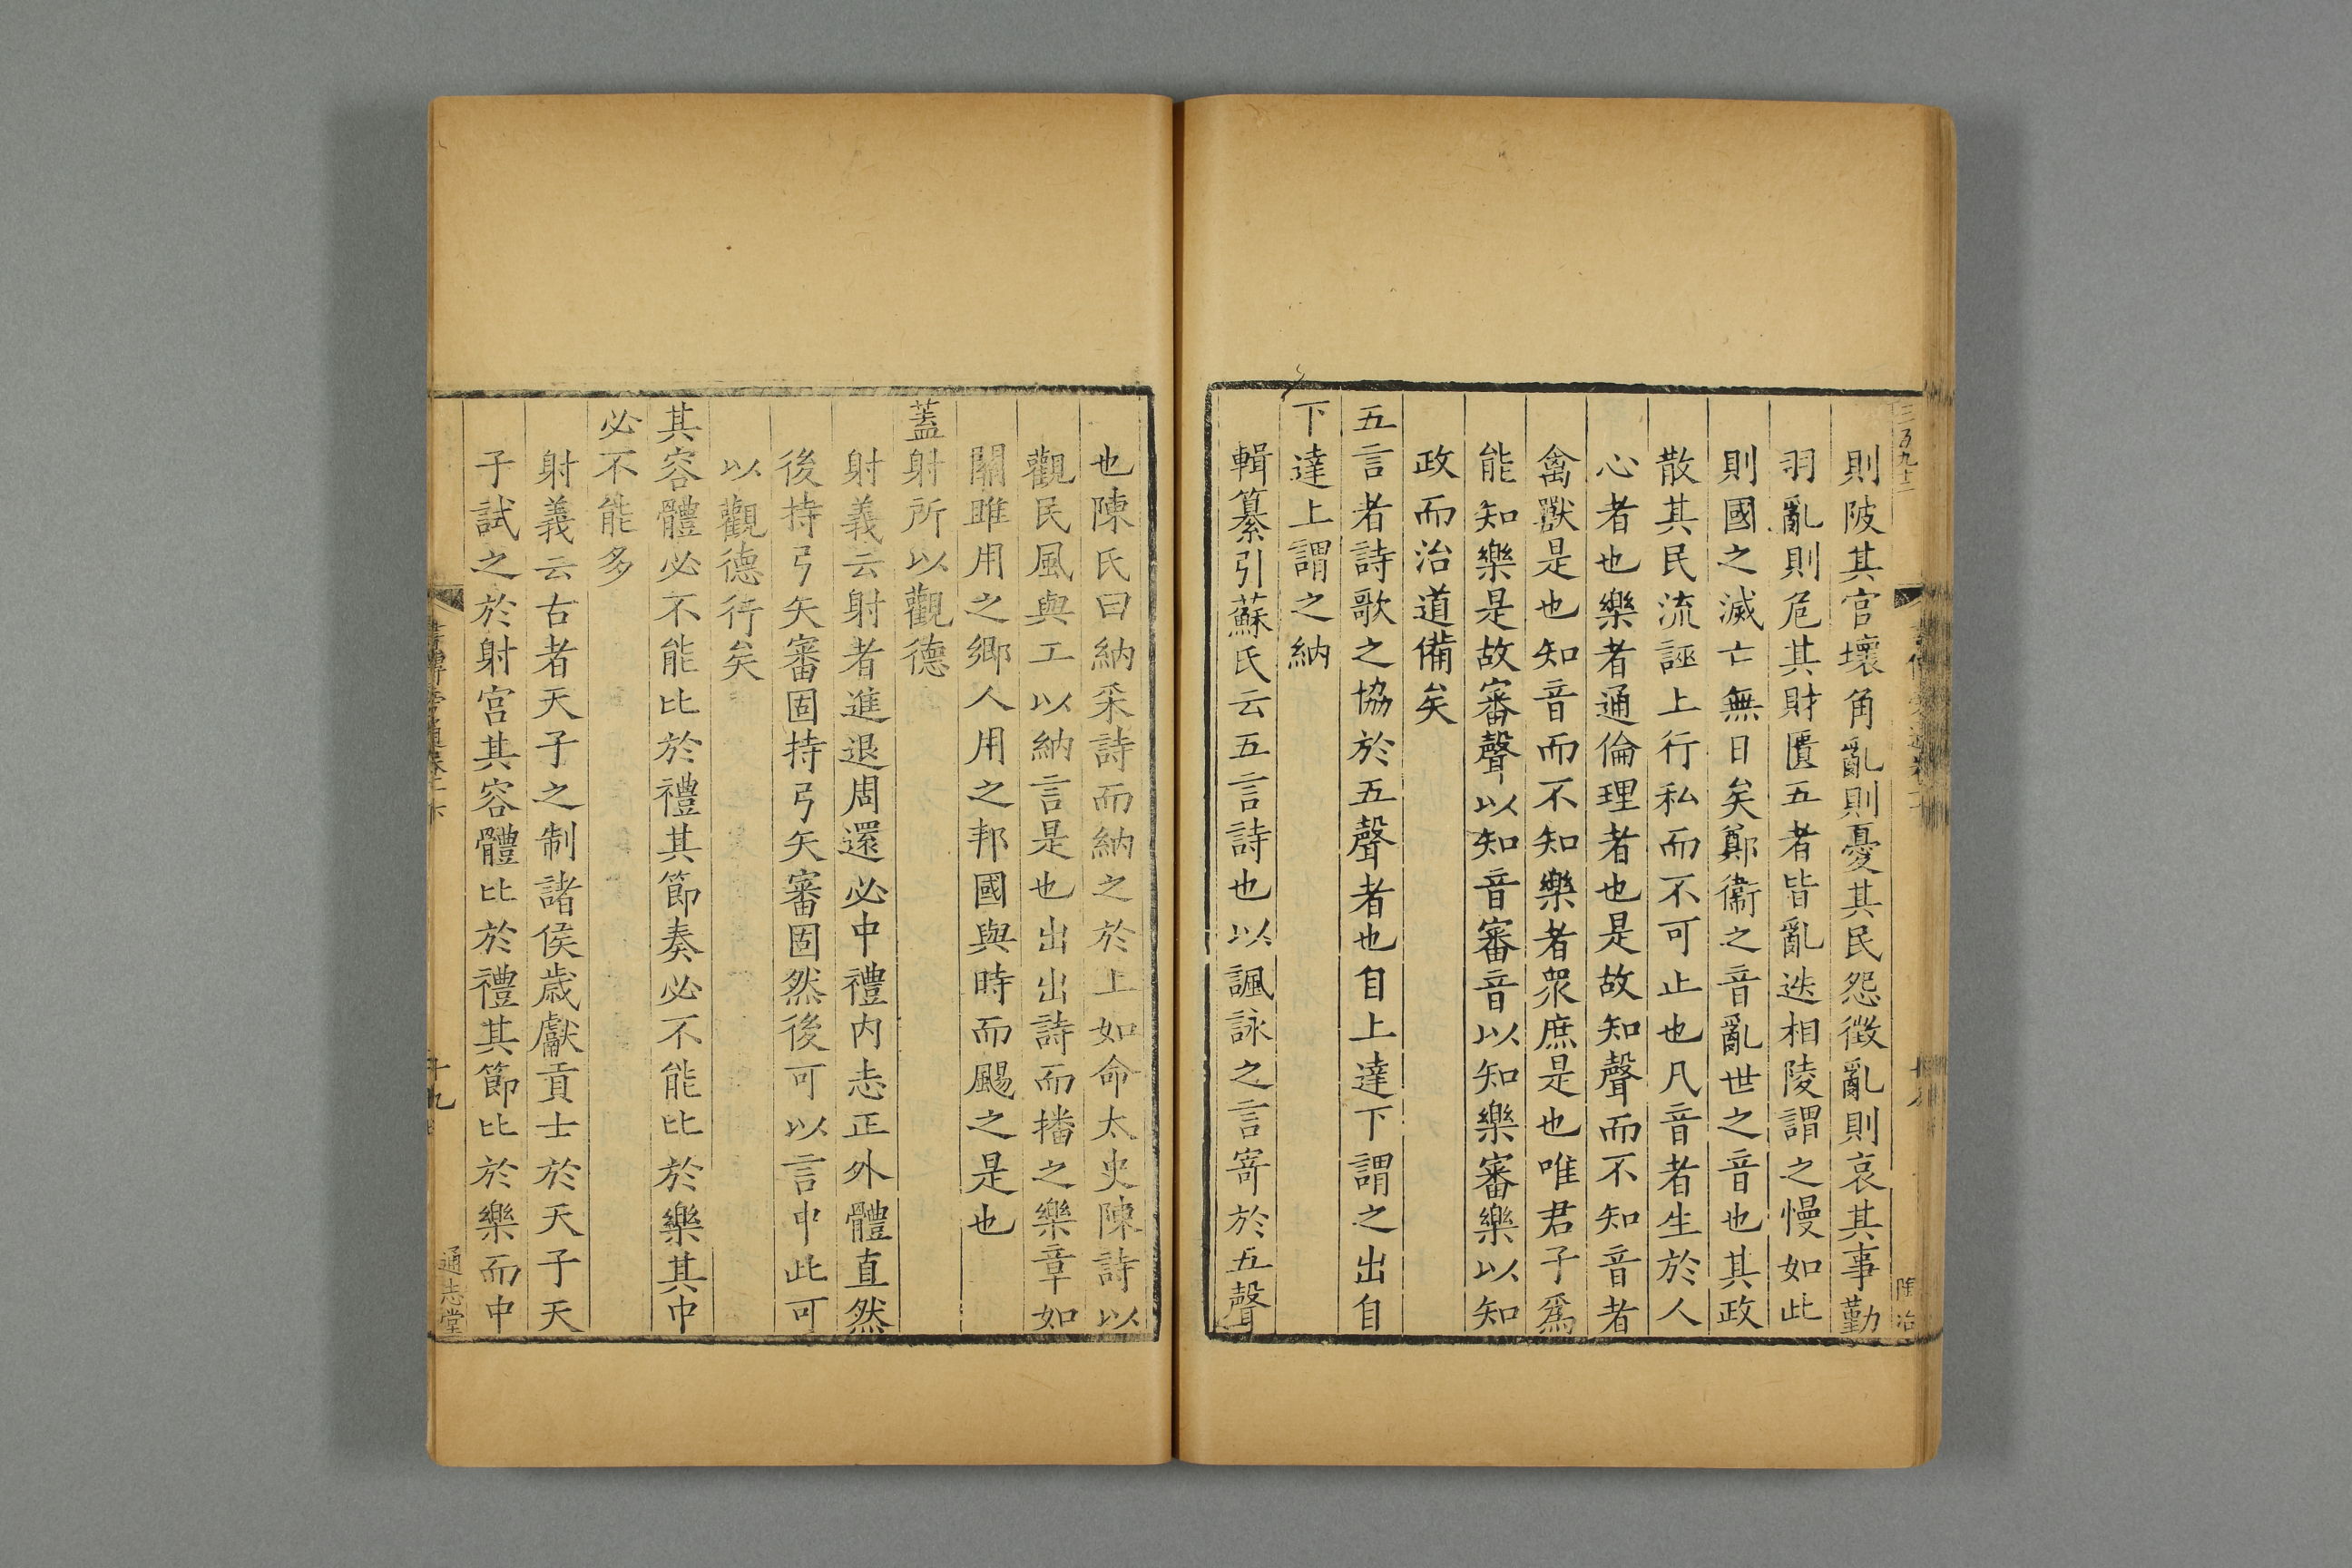 三百九十二
陶冶
則陂其官壞角亂則憂其民怨徵亂則哀其事勤
羽亂則危其財匱五者皆亂迭相陵謂之慢如此
則國之滅亡無日矣鄭衞之音亂世之音也其政
散其民流誣上行私而不可止也凡音者生於人
心者也樂者通倫理者也是故知聲而不知音者
禽獸是也知音而不知樂者衆庶是也唯君子爲
能知樂是故審聲以知音審音以知樂審樂以知
政而治道備矣
五言者詩歌之協於五聲者也自上達下謂之出自
下達上謂之納
輯纂引蘇氏云五言詩也以諷詠之言寄於五聲
也陳氏曰納采詩而納之於上如命太史陳詩以
觀民風與工以納言是也出出詩而播之樂章如
關雎用之鄉人用之邦國與時而颺之是也
蓋射所以觀德
射義云射者進退周還必中禮内志正外體直然
後持弓矢審固持弓矢審固然後可以言中此可
以觀德行矣
其容體必不能比於禮其節奏必不能比於樂其中
必不能多
射義云古者天子之制諸侯歲獻貢士於天子天
子試之於射宮其容體比於禮其節比於樂而中
十九
通志堂